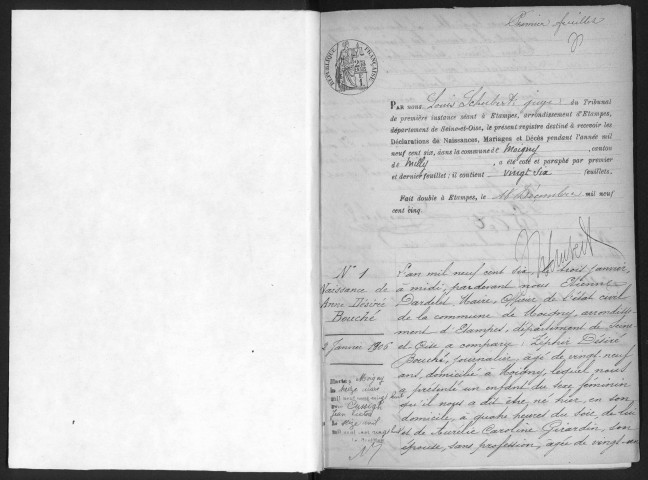 Premier feuillet
RÉPUBLIQUE FRANÇAISE
PAR nous Louis Schubert juge du Tribunal
de première instance séant à Etampes, arrondissement d'Etampes,
département de Seine-et-Oise, le présent registre destiné à recevoir les
Déclarations de Naissances, Mariages et Décès pendant l'année mil
neuf cent six, dans la commune de Moigny, canton
de Milly, a été coté et paraphé par premier
et dernier feuillet; il contient vingt six feuillets.
Fait double à Etampes, le décembre mil neuf
cent cinq.
Schubert
N° 1
Naissance de
Anne Désirée
Bouché
2 Janvier 1906
Mariée à Moigny
le seize mars
mil neuf cent vingt huit
le seize avril
mil neuf cent vingt huit
L'an mil neuf cent six, le trois janvier,
à midi, pardevant nous Etienne
Dardelet, Maire, Officier de l'état civil
de la commune de Moigny, arrondisse-
ment d'Etampes, département de Seine-
et-Oise a comparu : Zéphir Désiré
Bouché, journalier, âgé de vingt neuf
ans, domicilié à Moigny, lequel nous
a présenté un enfant du sexe féminin
qu'il nous a dit être né hier, en son
domicile, à quatre heures du soir, de lui
et de Aurélie Caroline Girardin, son
épouse, sans profession, âgée de vingt-un